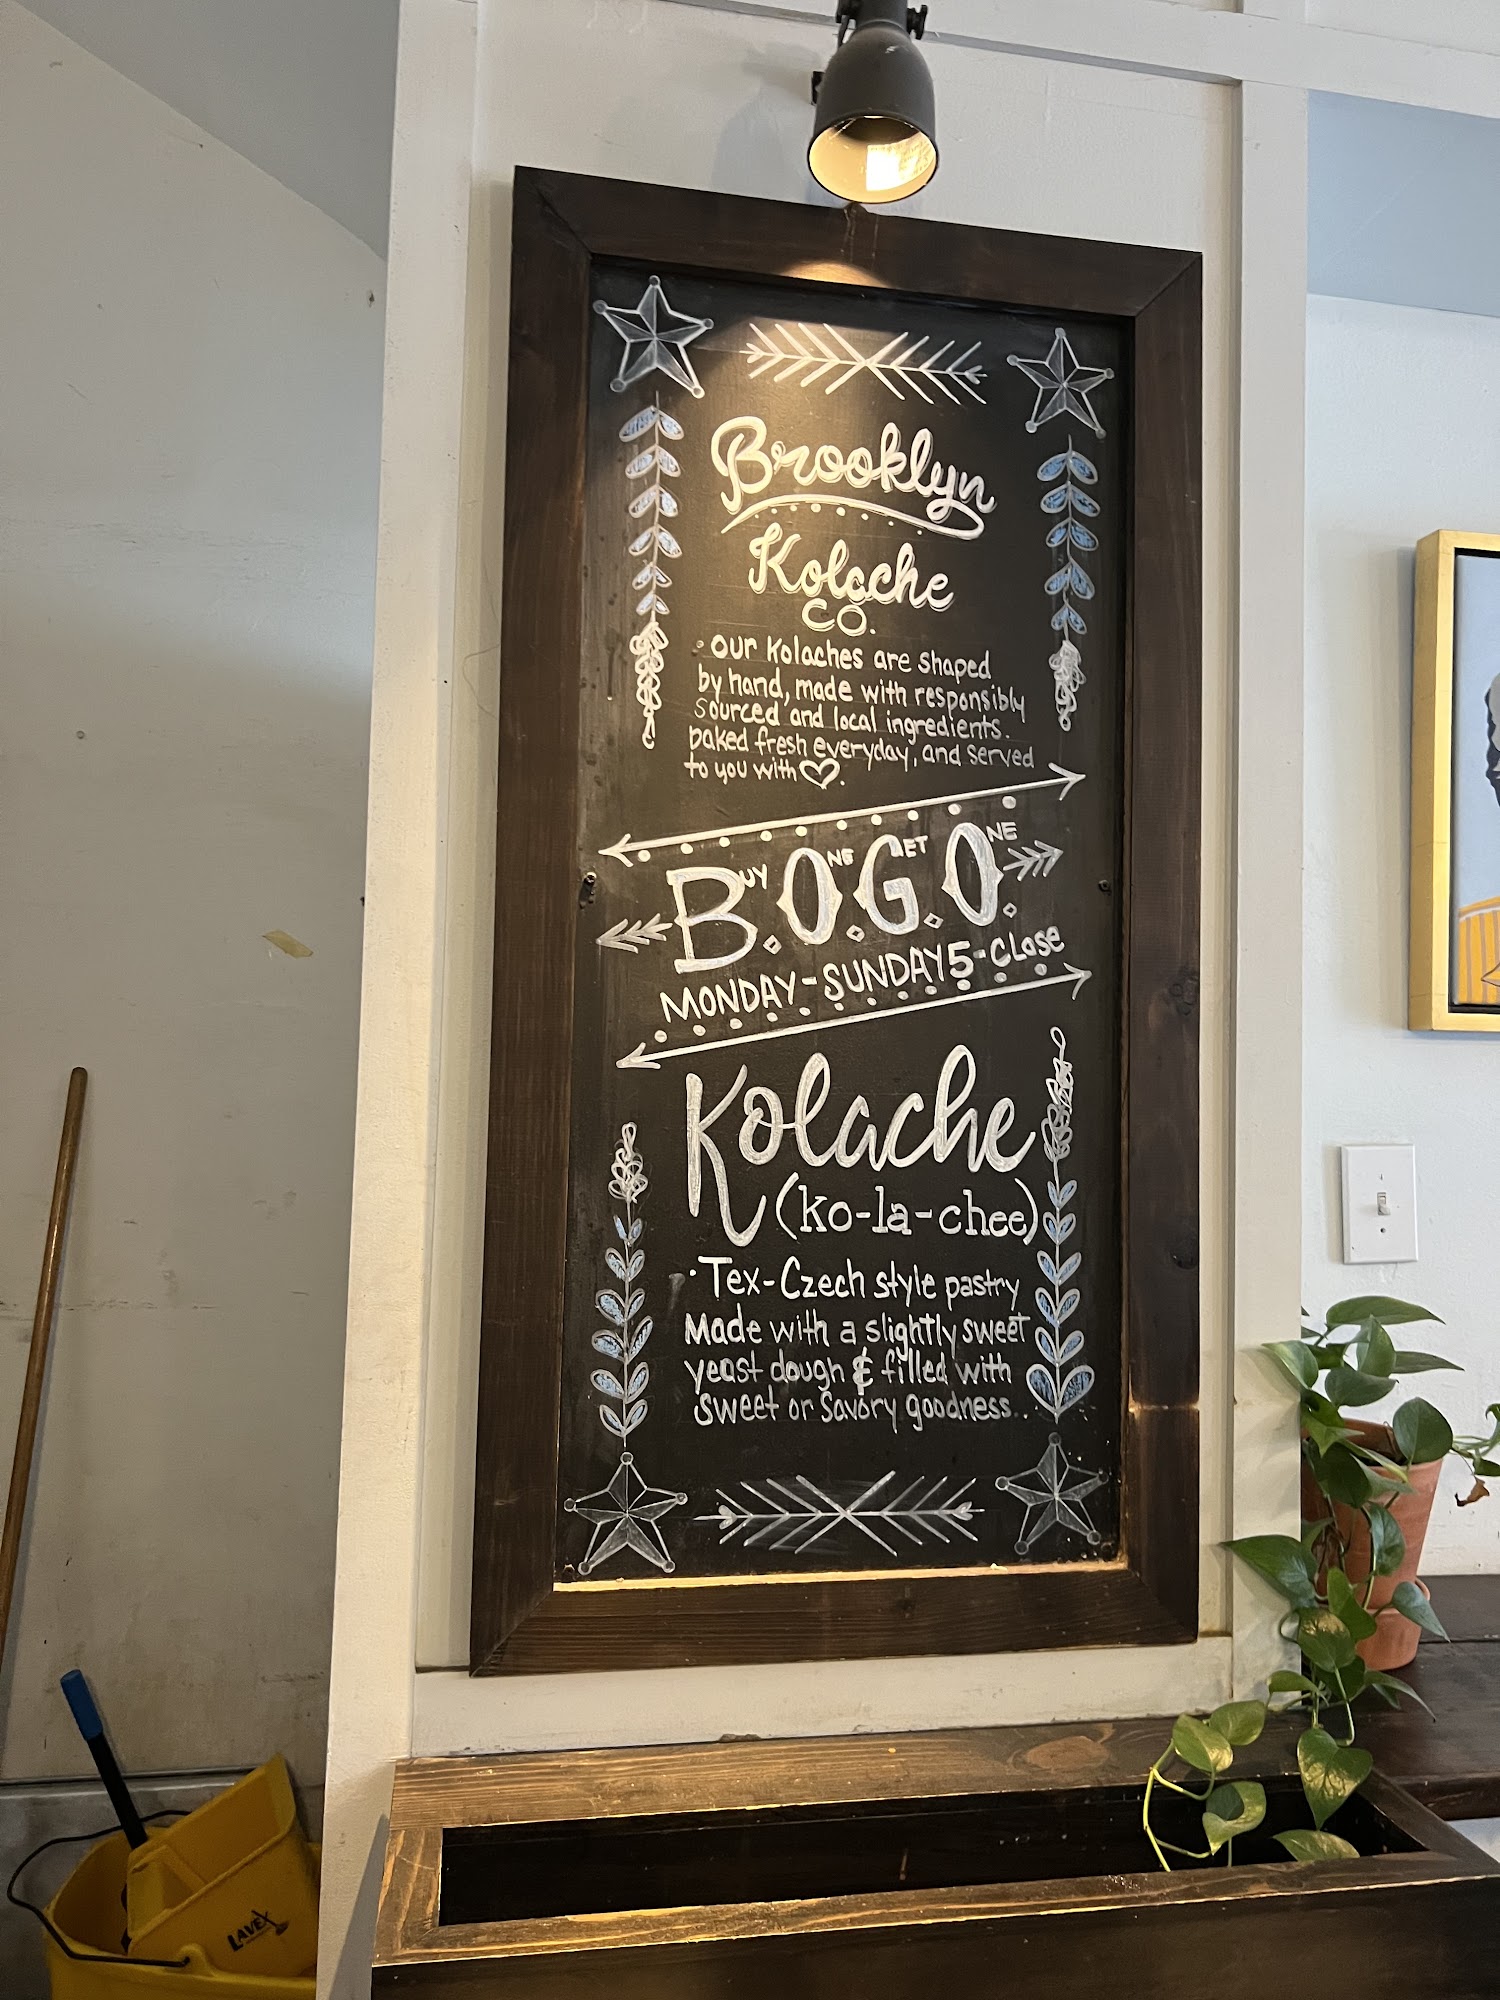 Brooklyn
Kolache
CO.
• OUR Kolaches are shaped
by hand, made with responsibly
sourced and local ingredients.
baked fresh everyday, and served
to you with ♡.
BUY.ONE.GET.ONE.
MONDAY-SUNDAY 5-CLOSE
Kolache
(ko-la-chee)
• Tex-Czech style pastry
Made with a slightly sweet
yeast dough & filled with
sweet or savory goodness..
LAVEX